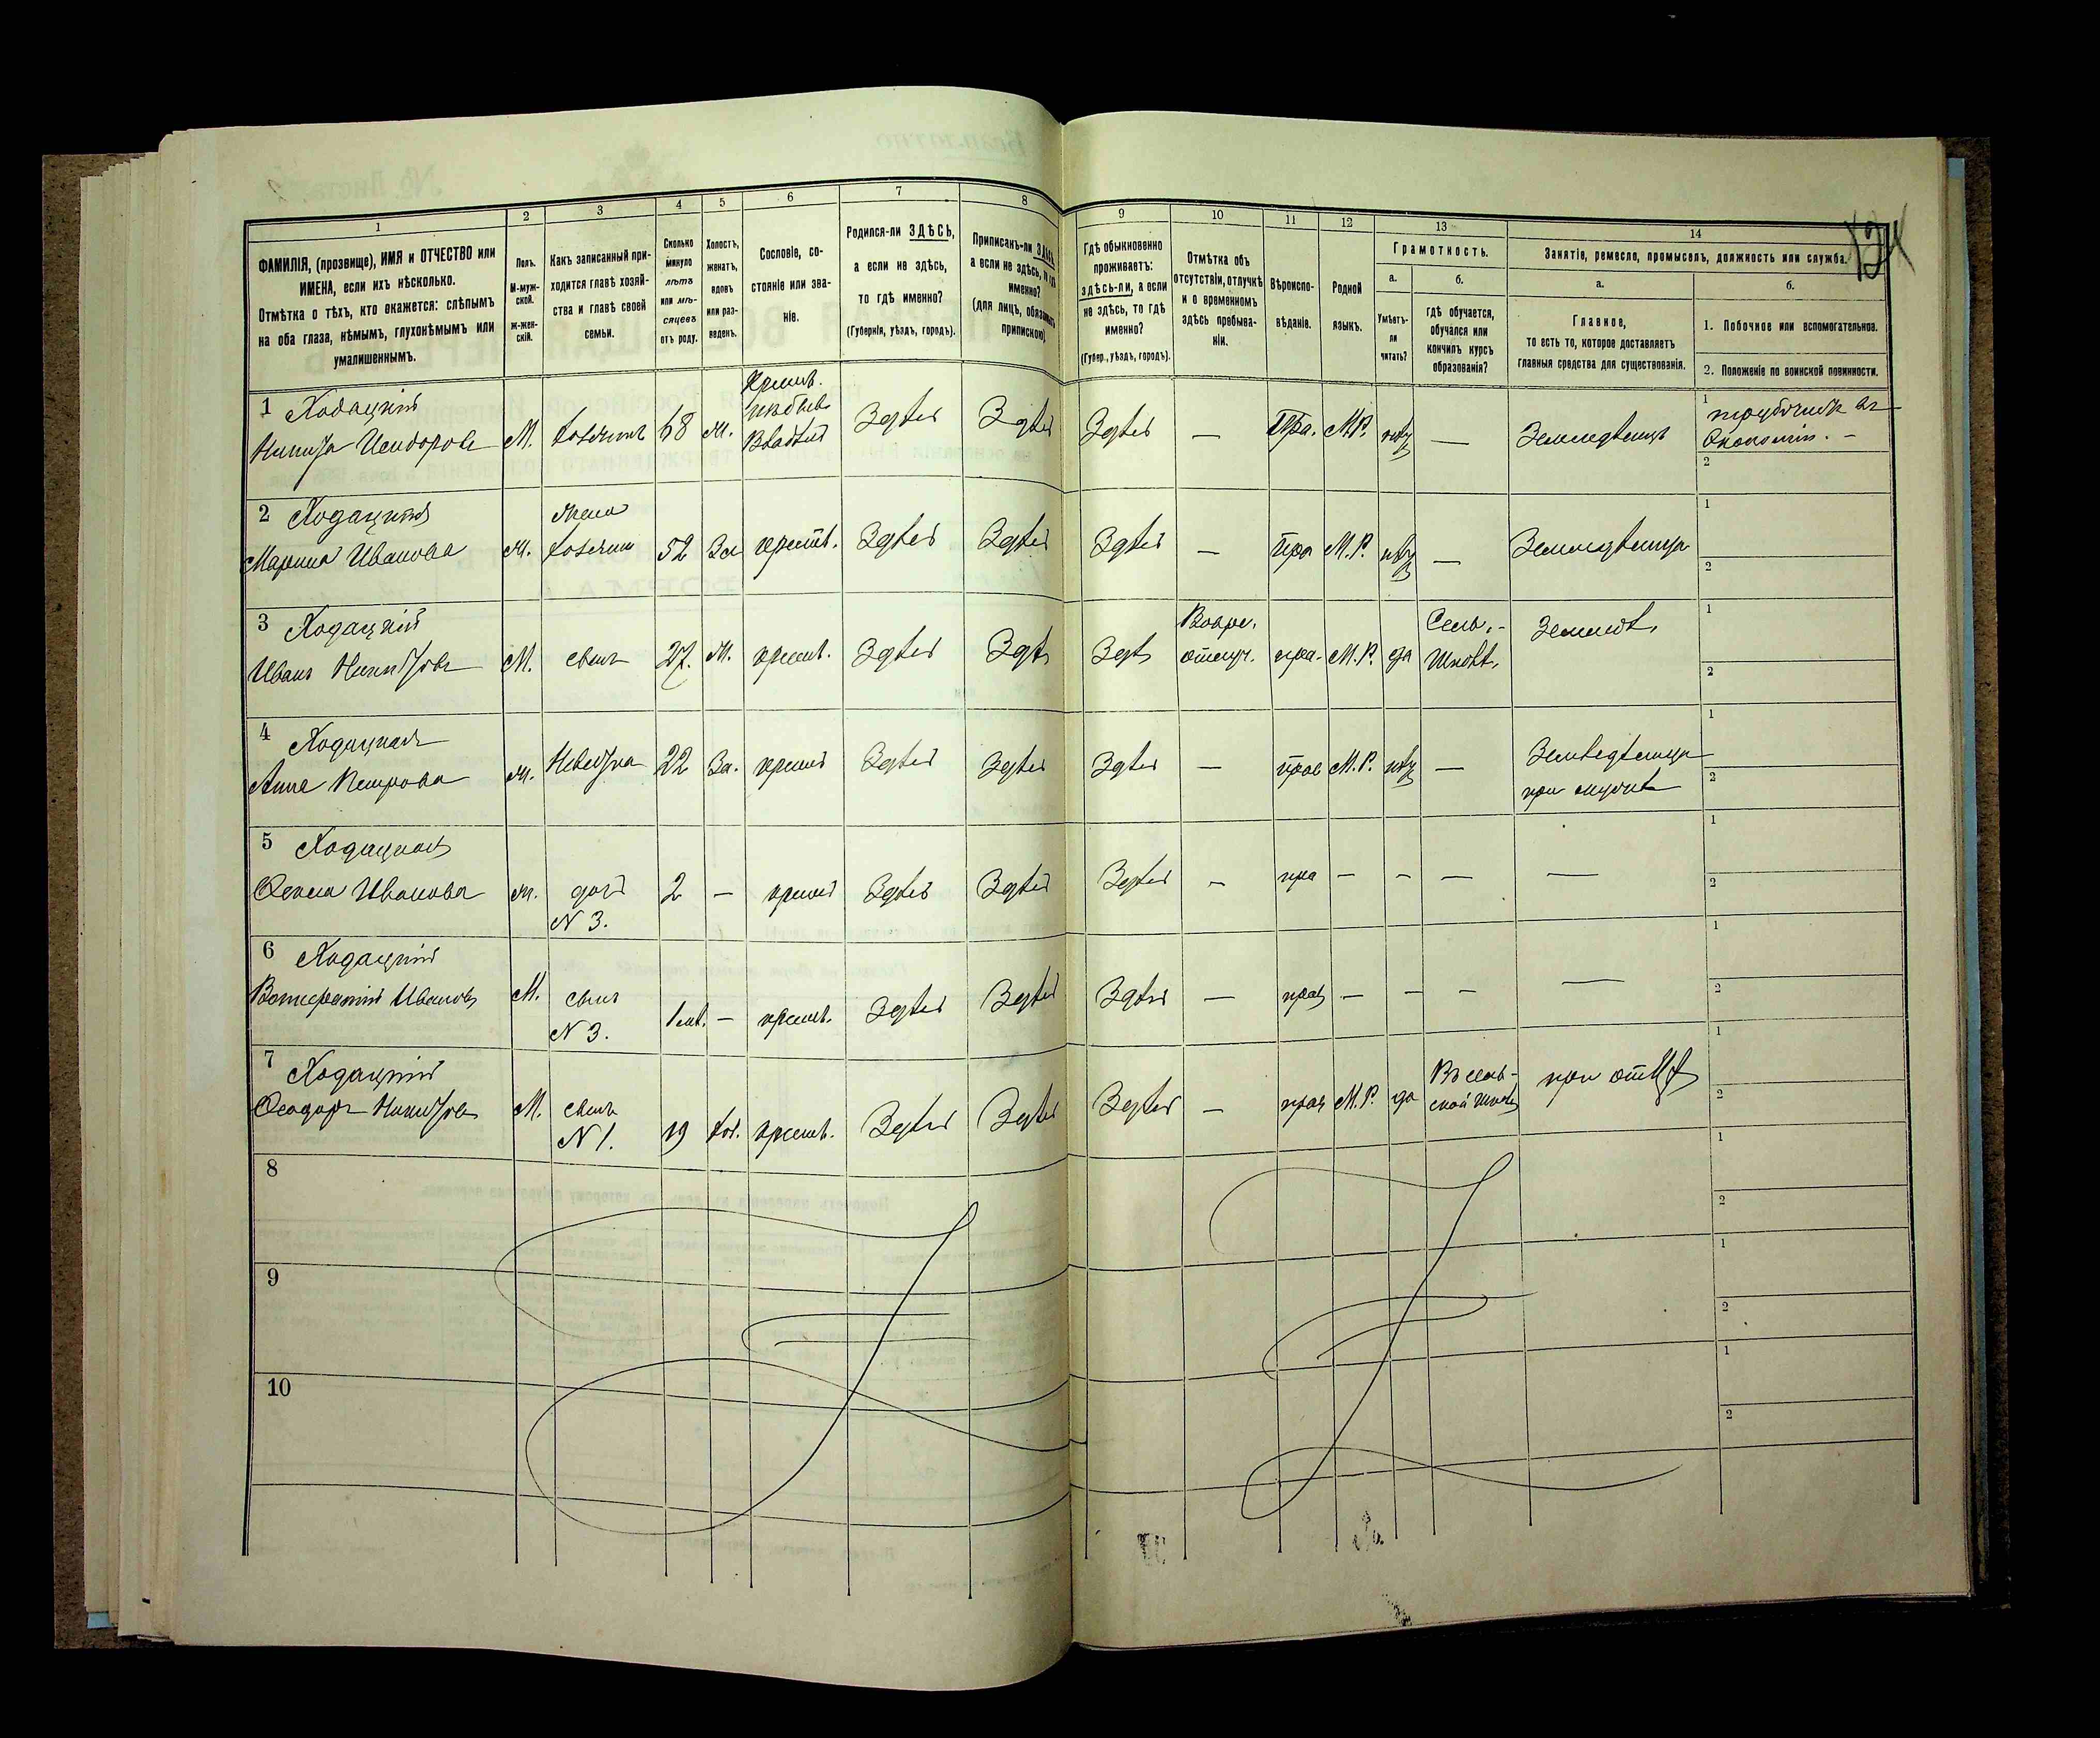 1 2 3 4 5 6 7 8 9 10 11 12 13 14
ФАМИЛІЯ, (прозвище), ИМЯ и ОТЧЕСТВО или
ИМЕНА, если ихъ нѣсколько.
Отмѣтка о тѣхъ, кто окажется: слѣпымъ
на оба глаза, нѣмымъ, глухонѣмымъ или
умалишеннымъ.
Полъ.
М-муж-
ской.
Ж-жен-
скій.
Какъ записанный при-
ходится главѣ хозяй-
ства и главѣ своей
семьи.
Сколько
минуло
лѣтъ
или мѣ-
сяцевъ
отъ роду.
Холостъ,
женатъ,
вдовъ
или раз-
веденъ.
Сословіе, со-
стояніе или зва-
ніе.
Родился-ли ЗДѢСЬ,
а если не здѣсь,
то гдѣ именно?
(Губернія, уѣздъ, городъ).
Приписанъ-ли ЗДѢСЬ,
а если не здѣсь, то гдѣ
именно?
(для лицъ, обязанныхъ
припискою)
Гдѣ обыкновенно
проживаетъ:
здѣсь-ли, а если
не здѣсь, то гдѣ
именно?
(Губер., уѣздъ, городъ).
Отмѣтка объ
отсутствіи, отлучкѣ
и о временномъ
здѣсь пребыва-
ніи.
Вѣроиспо-
вѣданіе.
Родной
языкъ.
Грамотность.
а.
Умѣетъ-
ли
читать?
б.
гдѣ обучается,
обучался или
кончилъ курсъ
образованія?
Занятіе, ремесло, промыселъ, должность или служба.
а.
Главное,
то есть то, которое доставляетъ
главныя средства для существованія.
б.
1. Побочное или вспомогательное.
2. Положеніе по воинской повинности.
1 Ходацкій
Никита Исидоровъ М. хозяинъ 68 ж. Крест. Здѣсь Здѣсь Здѣсь — Пра. М.Р. нѣтъ — Земледѣлецъ
1
Экономіи. —
2
2 Ходацкая
Марина Иванова ж. жена хозяина 52 За крест. Здѣсь Здѣсь Здѣсь — Пра М.Р. нѣтъ — Земледѣлица
1
2
3 Ходацкій
Иванъ Никитовъ М. сынъ 27. ж. крест. Здѣсь Здѣ Здѣ Вовре. отлуч. пра. М.Р. да Сель. Школѣ. Землед.
1
2
4 Ходацкая
Анна Петрова ж. Невѣстка 22 За. крест Здѣсь Здѣсь Здѣсь — прав М.Р. нѣтъ — Земледѣлица
при мужѣ
1
2
5 Ходацкая
Иванова ж. дочь 2 — крест Здѣсь Здѣсь Здѣсь — пра — — — —
N 3.
1
2
6 Ходацкій
Ивановъ М. сынъ 1 — крест. Здѣсь Здѣсь Здѣсь — прав — — — —
N 3.
1
2
7 Ходацкій
Ѳеодоръ Никитовъ М. сынъ 19 хол. крест. Здѣсь Здѣсь Здѣсь — прав М.Р. да Въ сель-
ской школѣ при отцѣ
N 1.
1
2
8
1
2
9
1
2
10
1
2